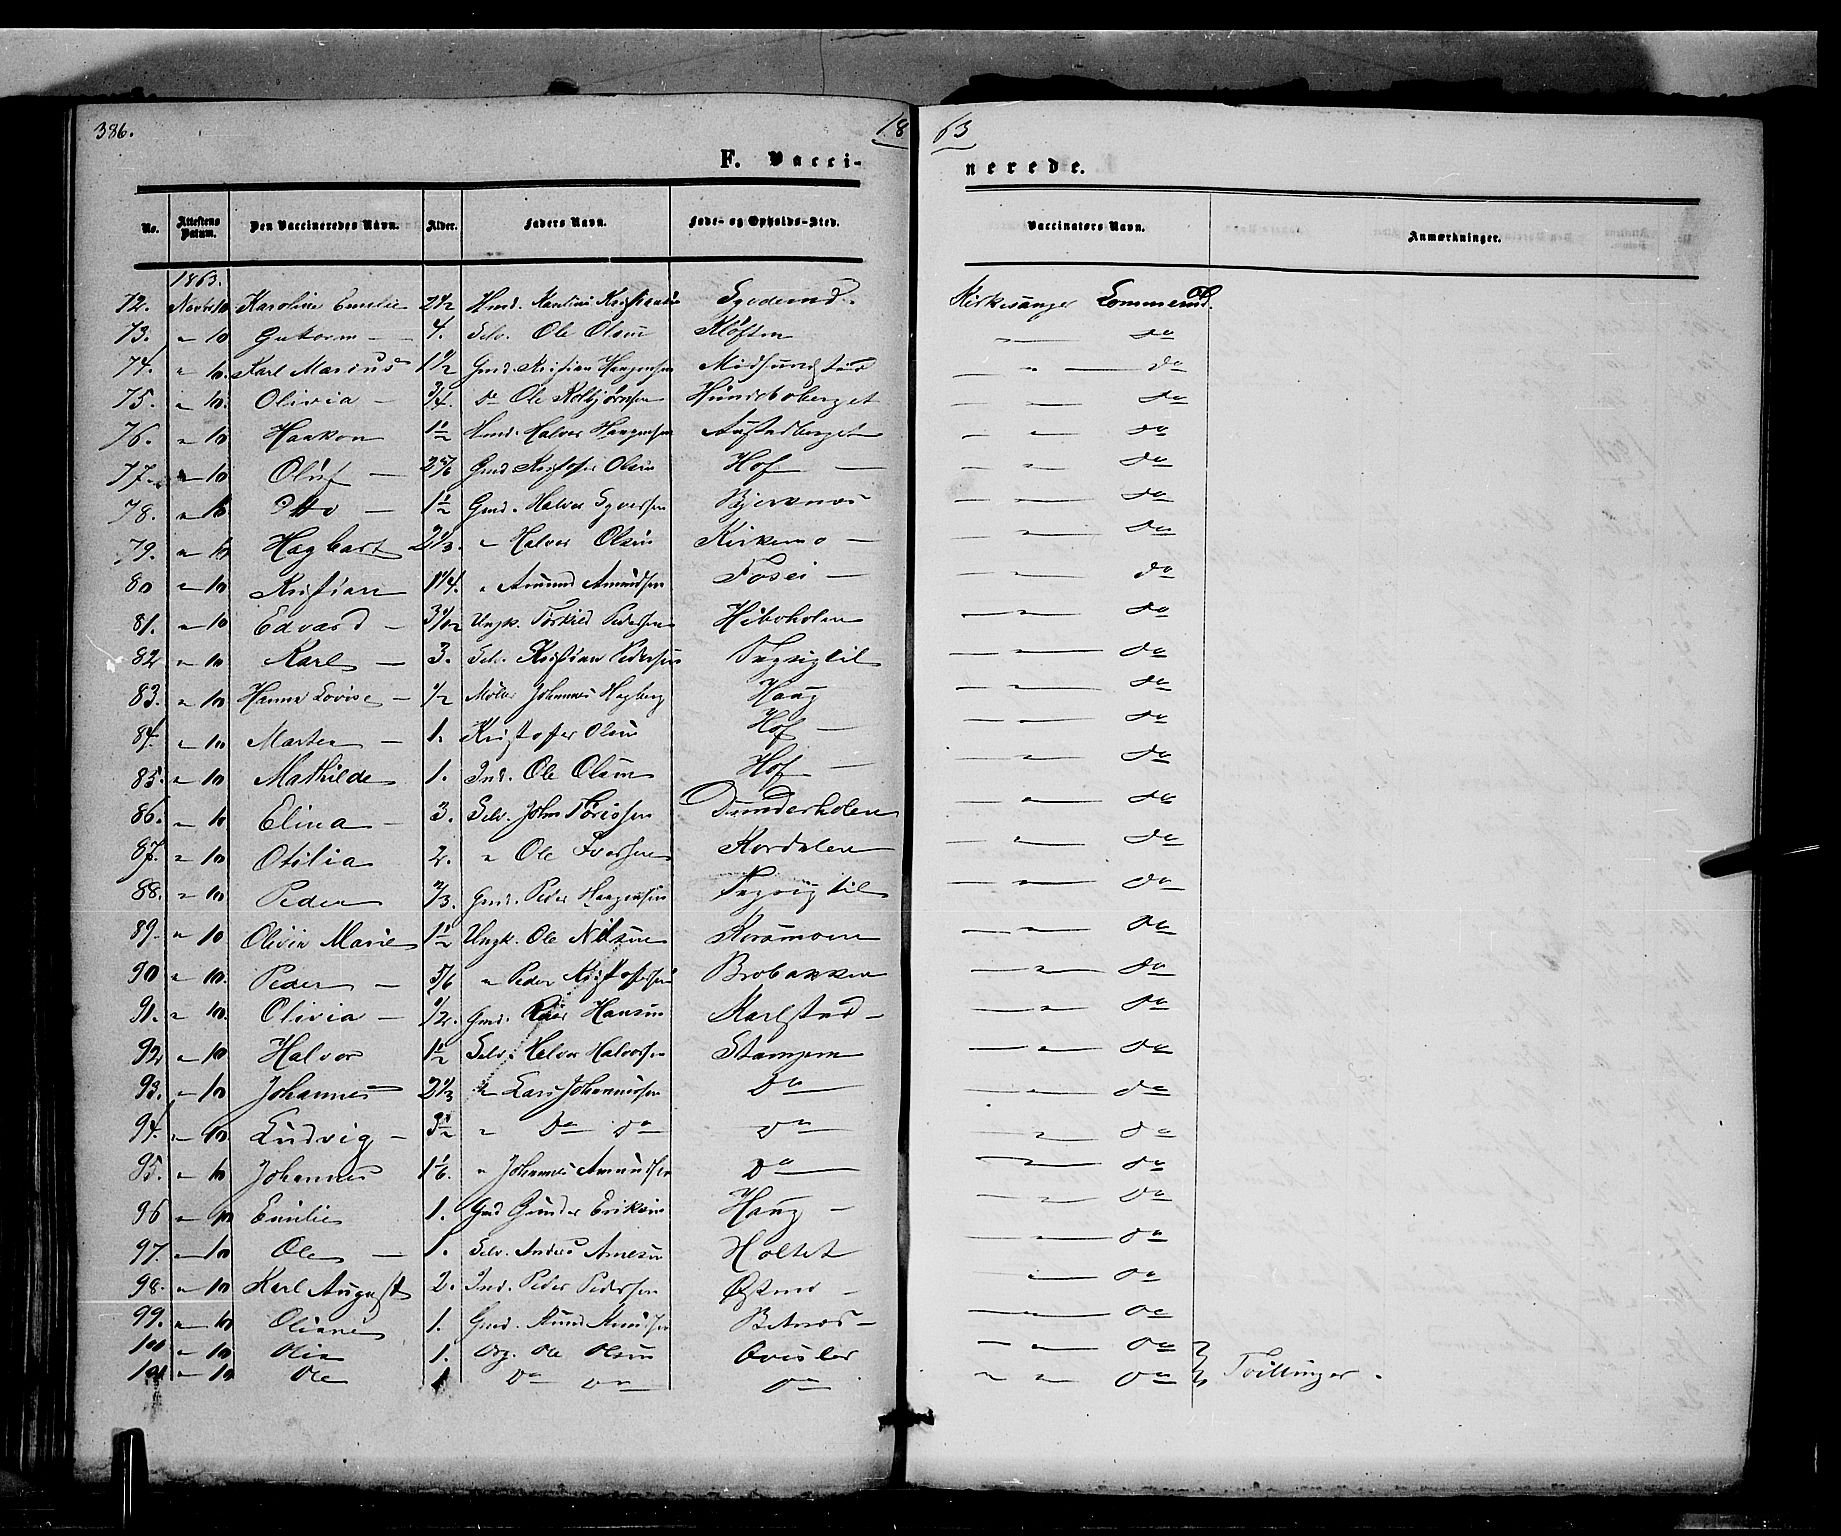 386.
18
63
F. Vacci-
nerede.
No. Attestens Datum. Den Vaccineredes Navn. Alder. Faders Navn. Føde- og Opholds-Sted. Vaccinators Navn. Anmærkninger.
1863.
72. 10 Karoline Emilie 2 1/2 Kirkesanger
73. " 10 Guttorm - 4. Selv. Ole Olsen Kløften — do
74. " 10. Karl Marius 1 1/2 Gmd. Kristian Haagensen — " — do
75. " 10. Olivia - 3/4. do Ole Kolbjørnsen Hundeboberget — — do
76. " 10 Haakon 1 1/2 Halvor Haagensen — " — do
77. " 10 Oluf - Gmd Kristofer Olsen Hof — — " — do
78. " 10 Otto - 1 1/2 Gmd. Halvor Bjerknæs — — do
79. " 10 Hagbart 2 1/3. " Halvor Olsen Kirkemo — — " — do
80 " 10 Kristian 1 1/4. " Amund Amundsen — — " — do
81. " 10 Edvard - Ungk. Pedersen Hiboholen — " — do
82 " 10 Karl — 3. Selv. Kristian Pedersen — — do
83. " 10 Hanna Lovise - 1/2 Møller Johannes Hagberg Haug — " — do
84. " 10 Marten - 1. Kristoffer Olsen Hof — — " — do
85. " 10 Mathilde 1. Ind. Ole Olsen Hof — — " — do
86. " 10 Elina - 3. Selv. John Dunderholen — " — do
87. " 10 Otilia 2. " Ole Iversen Kordalen — " — do
88. " 10 Peder 2/3. Gmd. Peder Haagensen — " — do
89. " 10 Olivia Marie 1 1/2 Ungk. Ole Nilsen Korsmoen — " — do
90 " 10. Peder - 5/6 " Peder Kristoffersen Brobakken — " — do
91. " 10. Olivia - 1/2. Gmd. Hansen Karlstad - — " — do
92 " 10 Halvor 1 1/2 Selv. Halvor Halvorsen Stampen — " — do
93. " 10 Johannes 2 1/3 " Lars Johannesen Do — " — do
94. " 10 Ludvig - 3 1/2 " Do do do — " — do
95. " 10 Johannes 1 1/6. " Johannes Amundsen Do — " — do
96 " 10 Emilie 1. Gmd Gunder Eriksen Haug - — " — do
97. " 10 Ole — 1. Selv. Anders Arnesen Holtet — " — do
98. " 10 Karl August 2. Ind. Peder Pedersen Østmo - — " — do
99. " 10 Oliane 1. Gmd. Knud Knudsen - — " — do
100 " 10 Olia 1. Ole Olsen — " — do
101 " 10 Ole 1 Do do do " " do Tvillinger.